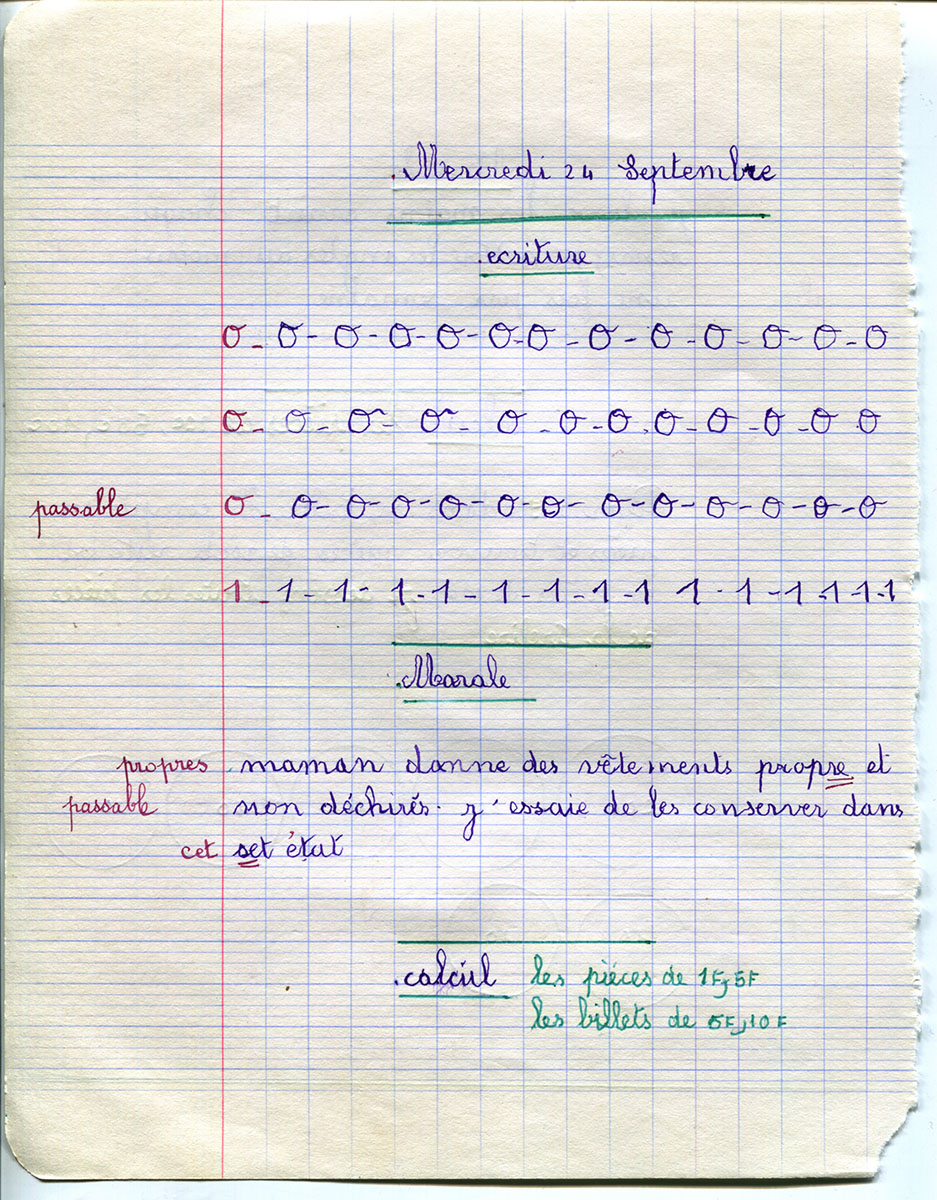 .Mercredi 24 Septembre
.ecriture
O - O - O - O - O - O - O - O - O - O - O - O - O
O - O - O - O - O - O - O . O - O - O - O . O
passable O - O - O - O - O - O - O - O - O - O - O - O - O
1 - 1 - 1 - 1 - 1 - 1 - 1 - 1 - 1 1 - 1 - 1 - 1 - 1 - 1
.Morale
propres maman donne des vêtements propre et
passable non déchirés. J'essaie de les conserver dans
cet set état
.calcul les pièces de 1F, 5F
les billets de 5F, 10F